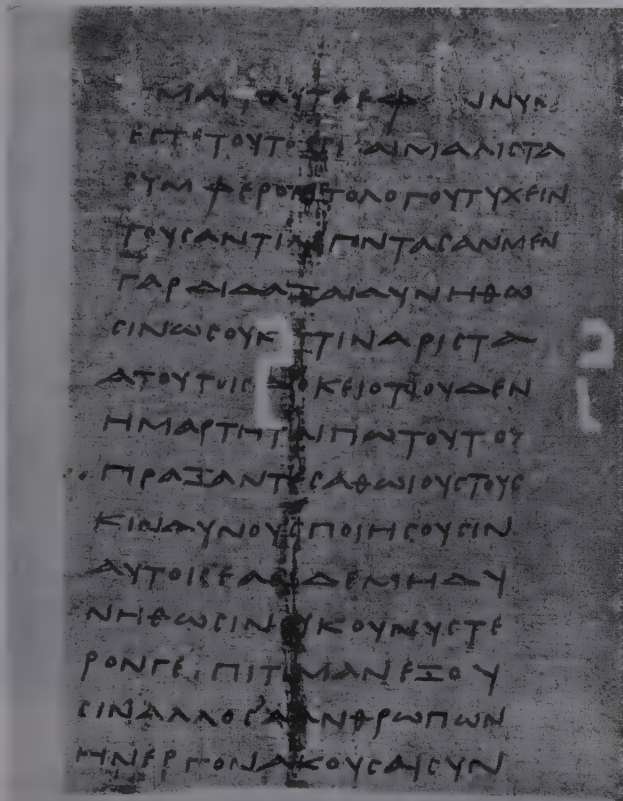 ΑΙΜΑΛΙϹΤΑ
ϹΥΜΦΕΡΟΝΤΟΛΟΓΟΥΤΥΧΕΙΝ
ΤΟΥϹΑΝΤΙ ΝΤΑϹΑΝΜΕΝ
ΓΑΡΔΙΔΑΞΑΙΔΥΝΗΘΩ
ϹΙΝΩϹΟΥΚ ΤΙΝΑΡΙϹΤΑ
ΑΤΟΥΤΟΙϹ ΔΟΚΕΙΟΤΙΟΥΔΕΝ
ΗΜΑΡΤΗΤΑΙΠΩΤΟΥΤΟΥ
ΠΡΑΞΑΝΤΕϹΑΘΩΙΟΥϹΤΟΥϹ
ΚΙΝΔΥΝΟΥϹΠΟΙΗϹΟΥϹΙΝ
ΑΥΤΟΙϹΕΑΝΔΕΜΗΔΥ
ΝΗΘΩϹΙΝΟΥΚΟΥΝΥϹΤΕ
ΡΟΝΓΕΠΙΤΙΜΑΝΕΞΟΥ
ϹΙΝΑΛΛΟϹΑΑΝΘΡΩΠΩΝ
ΗΝΕΡΓΟΝΑΚΟΥϹΑΙϹΥΝ